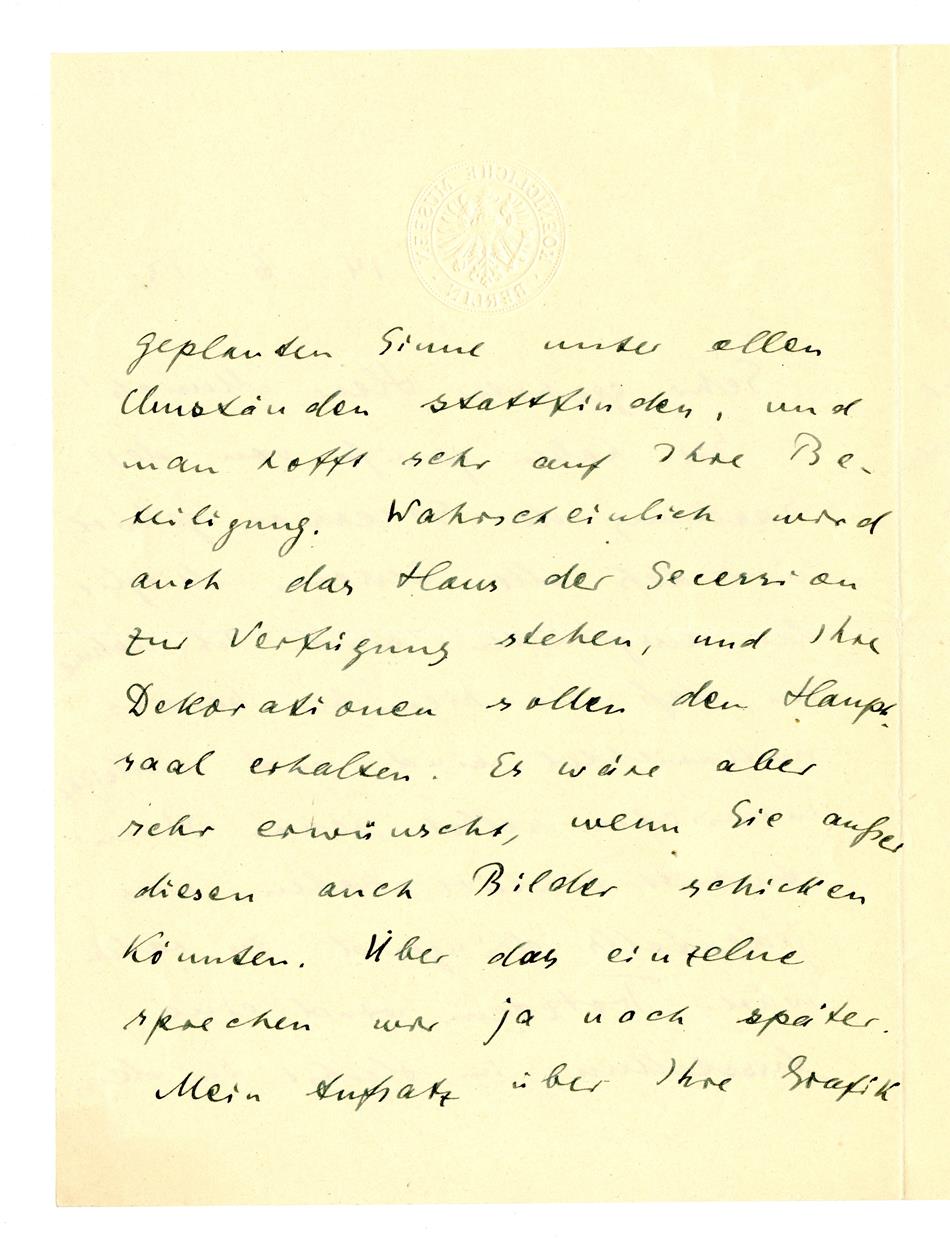 KOENIGLICHE MUSEEN · BERLIN ·
geplanten Sinne unter allen
Umständen stattfinden, und
man hofft sehr auf Ihre Be-
teiligung. Wahrscheinlich wird
auch das Haus der Secession
zur Verfügung stehen, und Ihre
Dekorationen sollen den Haupt-
saal erhalten. Es wäre aber
sehr erwünscht, wenn Sie außer
diesen auch Bilder schicken
könnten. Über das einzelne
sprechen wir ja noch später.
Mein Aufsatz über Ihre Grafik